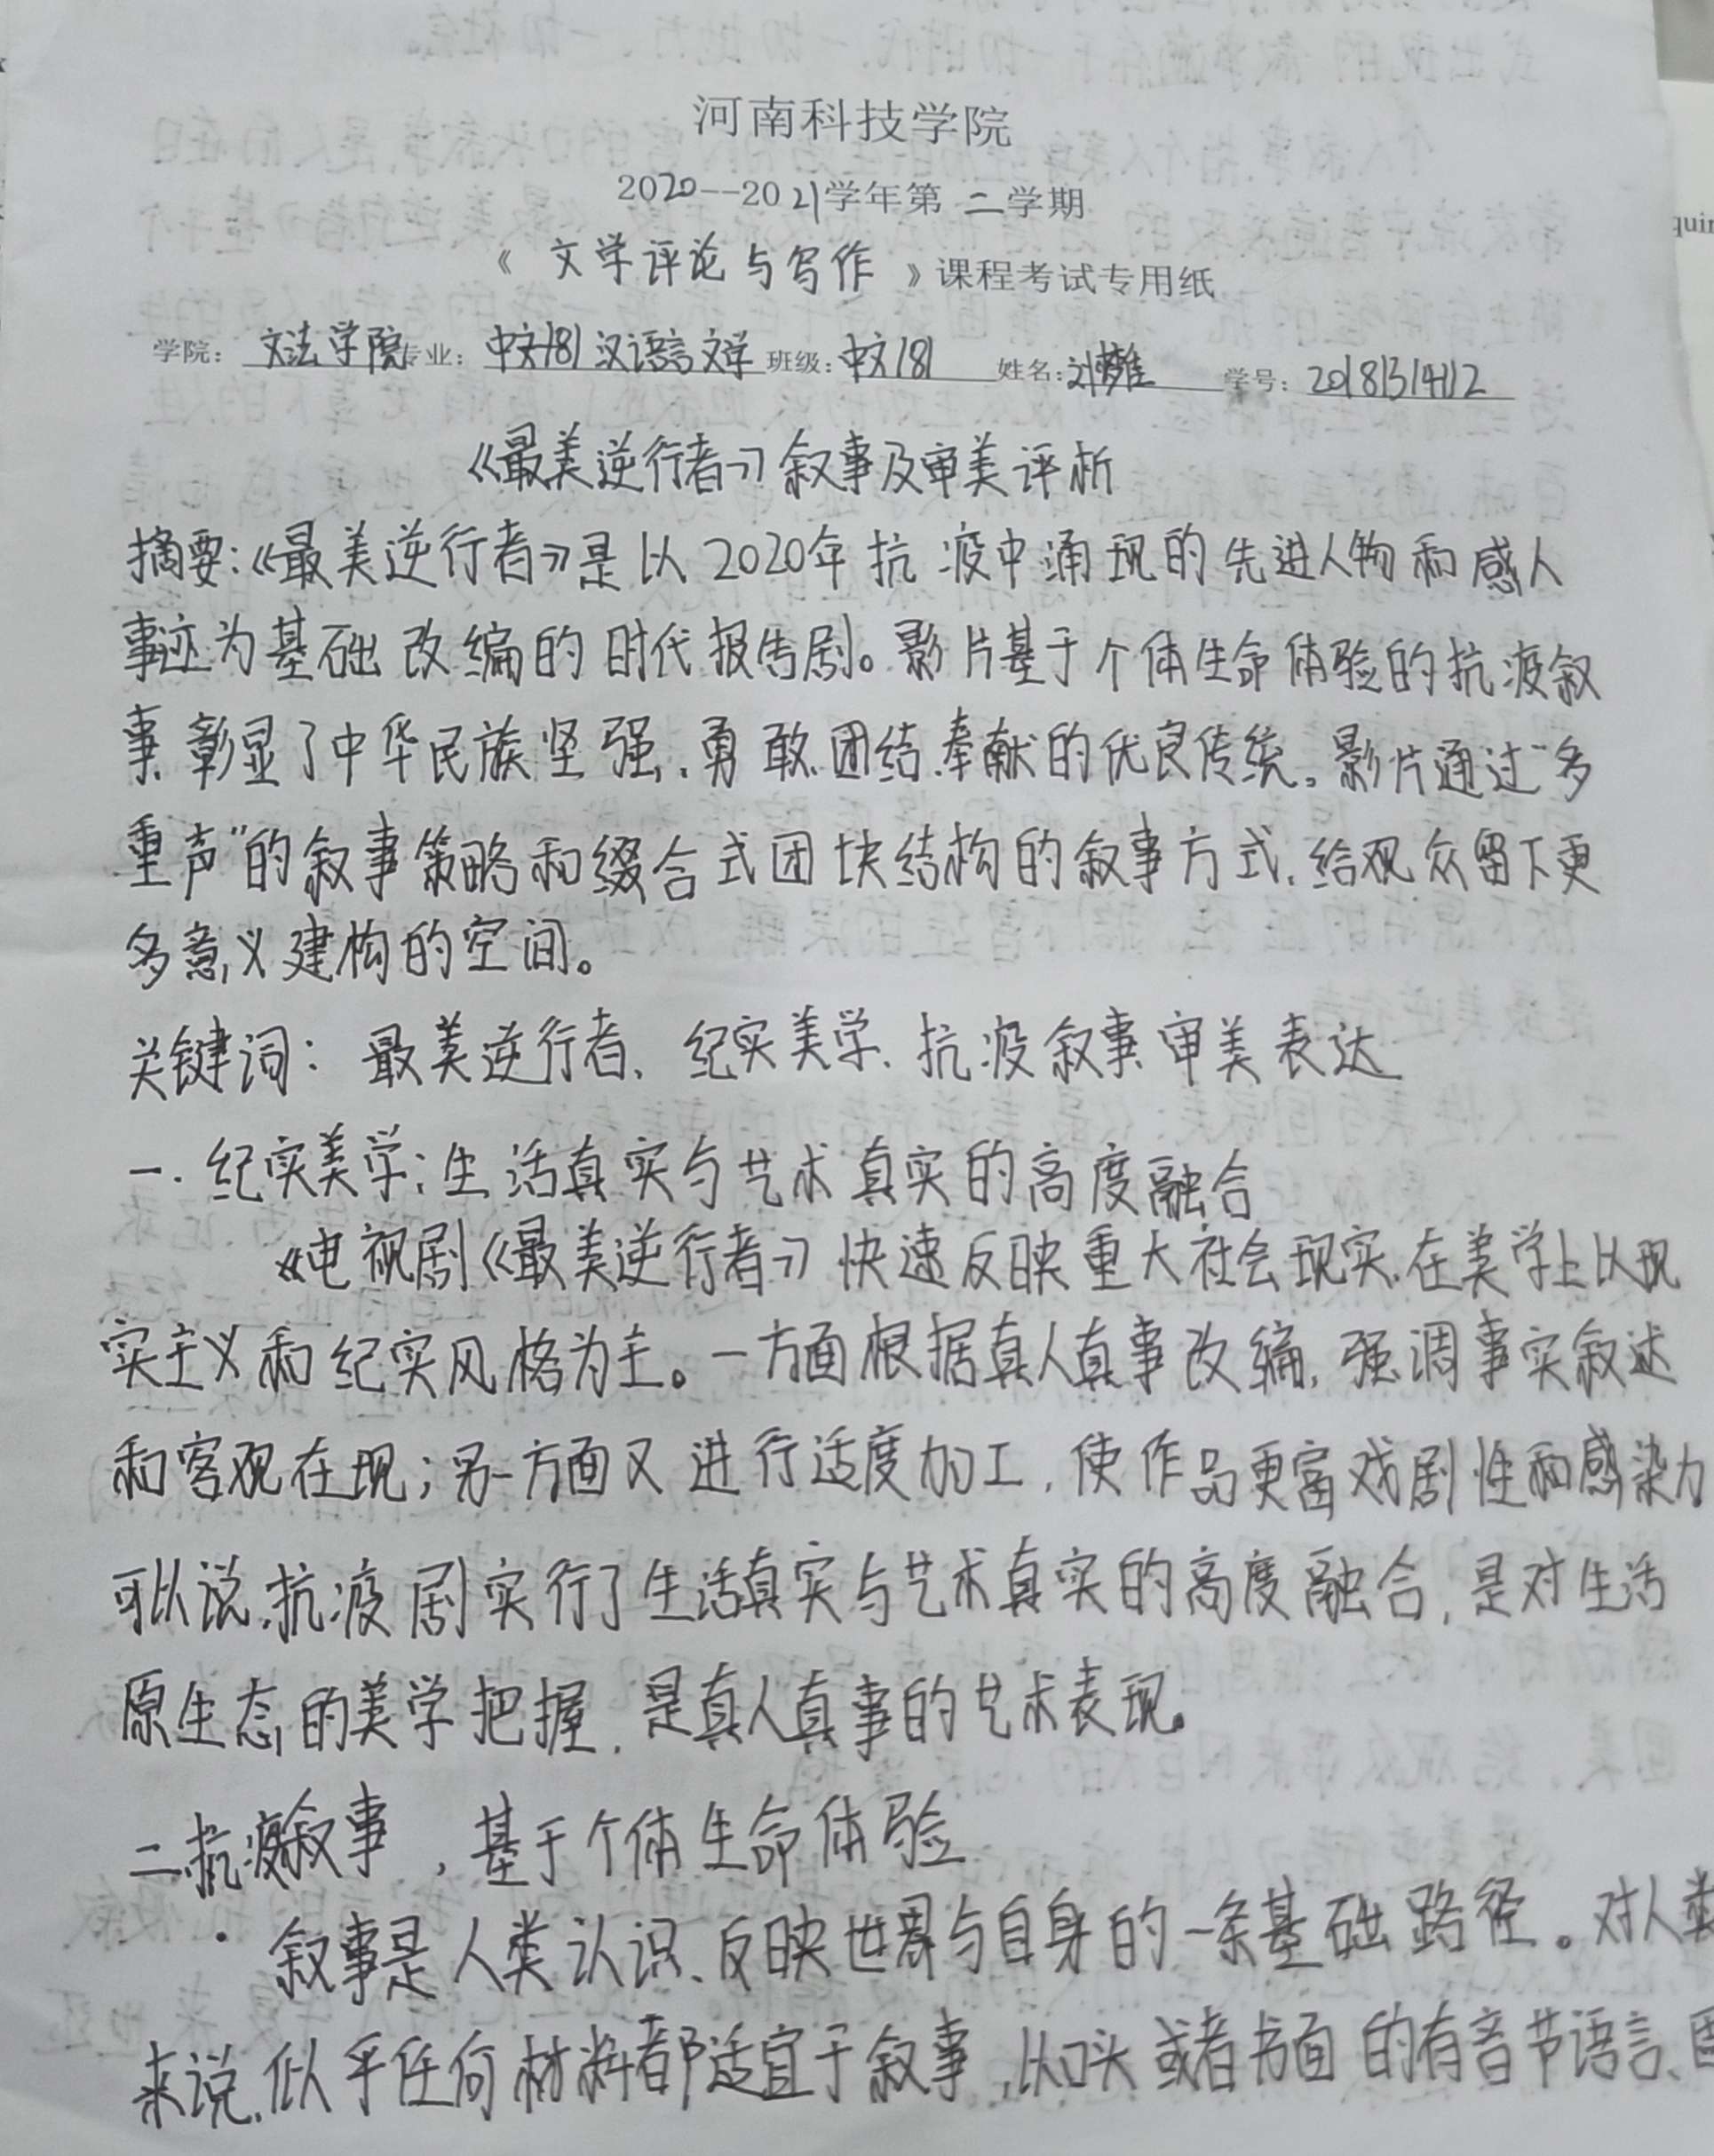 河南科技学院
2020--2021学年第 二学期
《 文学评论与写作 》课程考试专用纸
学院: 文法学院 专业: 中文181 汉语言文学 班级: 中文181 姓名: 刘 学号: 20181314112
《最美逆行者》叙事及审美评析
摘要:《最美逆行者》是以2020年抗疫中涌现的先进人物和感人
事迹为基础改编的时代报告剧。影片基于个体生命体验的抗疫叙
事,彰显了中华民族坚强、勇敢、团结、奉献的优良传统。影片通过“多
重声”的叙事策略和缀合式团块结构的叙事方式,给观众留下更
多意义建构的空间。
关键词: 最美逆行者、纪实美学、抗疫叙事、审美表达
一.纪实美学:生活真实与艺术真实的高度融合
《电视剧《最美逆行者》快速反映重大社会现实,在美学上以现
实主义和纪实风格为主。一方面根据真人真事改编,强调事实叙述
和客观在现;另一方面又进行适度加工,使作品更富戏剧性和感染力
可以说,抗疫剧实行了生活真实与艺术真实的高度融合,是对生活
原生态的美学把握,是真人真事的艺术表现。
二.抗疫叙事,基于个体生命体验
叙事是人类认识、反映世界与自身的一条基础路径。对人类
来说,似乎任何材料都适宜于叙事,以口头或者书面的有音节语言、
quir